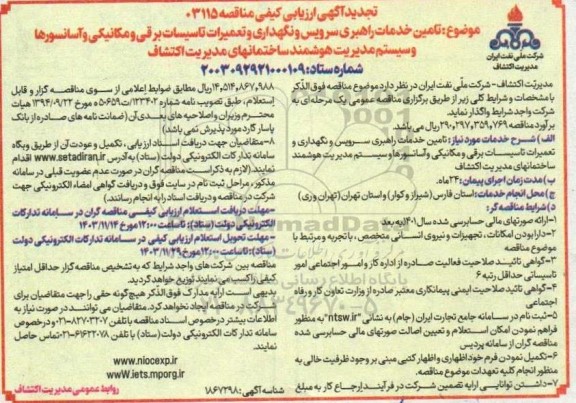 تجدید آگهی ارزیابی کیفی مناقصه ۰۳۱۱۵
موضوع: تامین خدمات راهبری سرویس و نگهداری و تعمیرات تاسیسات برقی و مکانیکی و آسانسورها
و سیستم مدیریت هوشمند ساختمانهای مدیریت اکتشاف
شماره ستاد: ۲۰۰۳۰۹۲۹۲۱۰۰۰۱۰۹
شرکت ملی نفت ایران
مدیریت اکتشاف
مدیریت اکتشاف - شرکت ملی نفت ایران در نظر دارد موضوع مناقصه فوق الذکر
با مشخصات و شرایط کلی زیر از طریق برگزاری مناقصه عمومی یک مرحله ای به
شرکت واجد شرایط واگذار نماید.
برآورد مناقصه ۲۹۰,۲۹۷,۳۵۹,۷۶۹ ریال می باشد.
الف) شرح خدمات مورد نیاز: تامین خدمات راهبری سرویس و نگهداری و
تعمیرات تاسیسات برقی و مکانیکی و آسانسورها و سیستم مدیریت هوشمند
ساختمانهای مدیریت اکتشاف
ب) مدت زمان اجرای پیمان: ۲۴ ماه.
ج) محل انجام خدمات: استان فارس (شیراز و کوار) و استان تهران (تهران وری)
د) شرایط مناقصه گر:
۱- ارائه صورتهای مالی حسابرسی شده سال ۱۴۰۱ به بعد
۲- دارا بودن امکانات، تجهیزات و نیروی انسانی متخصص، با تجربه و مرتبط با
موضوع مناقصه
۳- گواهی تائید صلاحیت فعالیت صادره از اداره کار و امور اجتماعی امور
تاسیساتی حداقل رتبه ۶
۴- گواهی تائید صلاحیت ایمنی پیمانکاری معتبر صادره از وزارت تعاون کار و رفاه
اجتماعی
۵- ثبت نام در سامانه جامع تجارت ایران (جام) به نشانی "ntsw.ir" به منظور
فراهم نمودن امکان استعلام و تعیین اصالت صورتهای مالی حسابرسی شده
مناقصه گران از سامانه پردیس
۶- تکمیل نمودن فرم خوداظهاری و اظهار کتبی مبنی بر وجود ظرفیت خالی به
منظور انجام کلیه تعهدات موضوع مناقصه.
۷- داشتن توانایی ارایه تضمین شرکت در فرآیند ارجاع کار به مبلغ
۱۴,۵۱۴,۸۶۷,۹۸۸ ریال مطابق ضوابط اعلامی از سوی مناقصه گزار و قابل
استعلام، طبق تصویب نامه شماره ۱۲۳۴۰۲/ت۵۰۶۵۹ ه مورخ ۱۳۹۴/۰۹/۲۲ هیات
محترم وزیران و اصلاحیه های بعدی آن (ضمانت نامه های صادره از بانک
پاسارگاد مورد پذیرش نمی باشد)
۸- متقاضیان جهت دریافت اسناد ارزیابی، تکمیل و عودت آن از طریق وبگاه
سامانه تدارکات الکترونیکی دولت (ستاد) به آدرس www.setadiran.ir اقدام
نمایند. (لازم به ذکر است مناقصه گران در صورت عدم عضویت قبلی در سامانه
مذکور، مراحل ثبت نام در سایت فوق و دریافت گواهی امضاء الکترونیکی جهت
شرکت در مناقصه و دریافت اسناد را به انجام رسانند.)
- مهلت دریافت استعلام ارزیابی کیفی مناقصه گران در سامانه تدارکات
الکترونیکی دولت (ستاد): تا ساعت ۱۲:۰۰ مورخ ۱۴۰۳/۱۱/۱۴
- مهلت تحویل استعلام ارزیابی کیفی در سامانه تدارکات الکترونیکی دولت
(ستاد): تا ساعت ۱۲:۰۰ مورخ ۱۴۰۳/۱۱/۲۹
مناقصه بین شرکت های واجد شرایط که به تشخیص مناقصه گزار حداقل امتیاز
کیفی را کسب می نمایند توزیع خواهد گردید.
بدیهی است ارایه مدارک فوق الذکر هیچگونه حقی را جهت متقاضیان برای
شرکت در مناقصه ایجاد نخواهد کرد. متقاضیان می توانند در صورت نیاز به
اطلاعات بیشتر در خصوص اسناد مناقصه با تلفن ۸۲۷۰۳۲۰۷-۰۲۱ و در خصوص
سامانه تدارکات الکترونیکی دولت (ستاد) با تلفن ۶۱۶۲۲۰۷۸-۰۲۱ تماس حاصل
نمایند.
www.niocexp.ir
www.iets.mporg.ir
شناسه آگهی: ۱۸۶۷۲۹۸
روابط عمومی مدیریت اکتشاف